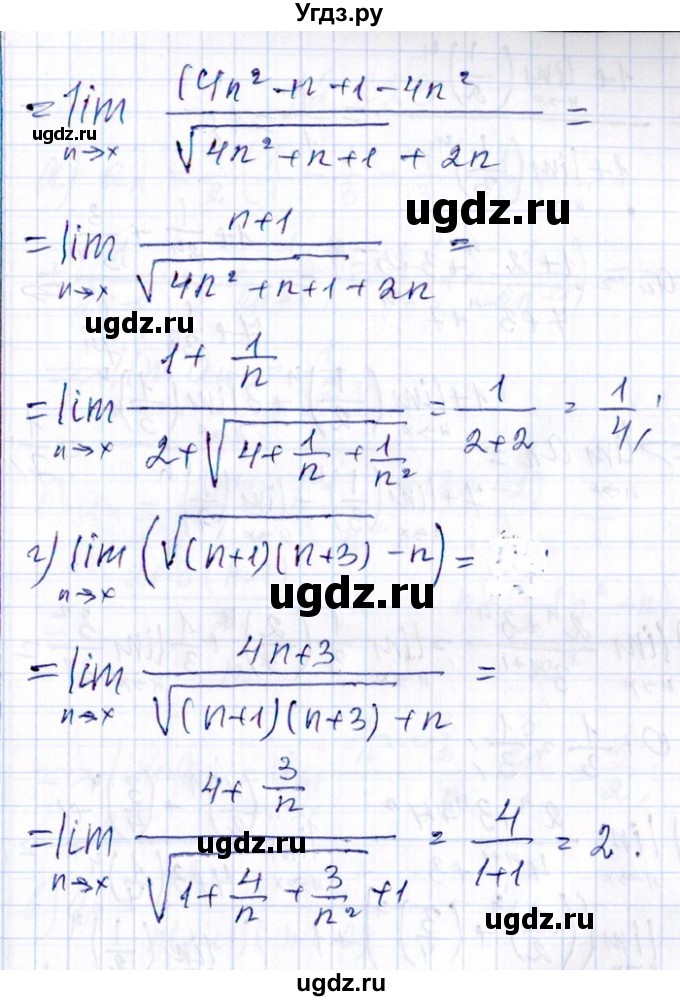 Угдз.ру
= lim_{n→x} (4n² - n + 1 - 4n² / (√(4n² + n + 1) + 2n) =
ugdz.ru
ugdz.ru
= lim_{n→x} (n+1) / (√(4n² + n + 1) + 2n) =
ugdz.ru
= lim_{n→x} (1 + 1/n) / (2 + √(4 + 1/n + 1/n²)) = 1/(2+2) = 1/4;
г) lim_{n→x} (√((n+1)(n+3)) - n) =
ugdz.ru
= lim_{n→x} (4n+3) / (√((n+1)(n+3)) + n) =
= lim_{n→x} (4 + 3/n) / (√(1 + 4/n + 3/n²) + 1) = 4/(1+1) = 2.
ugdz.ru
ugdz.ru
ugdz.ru